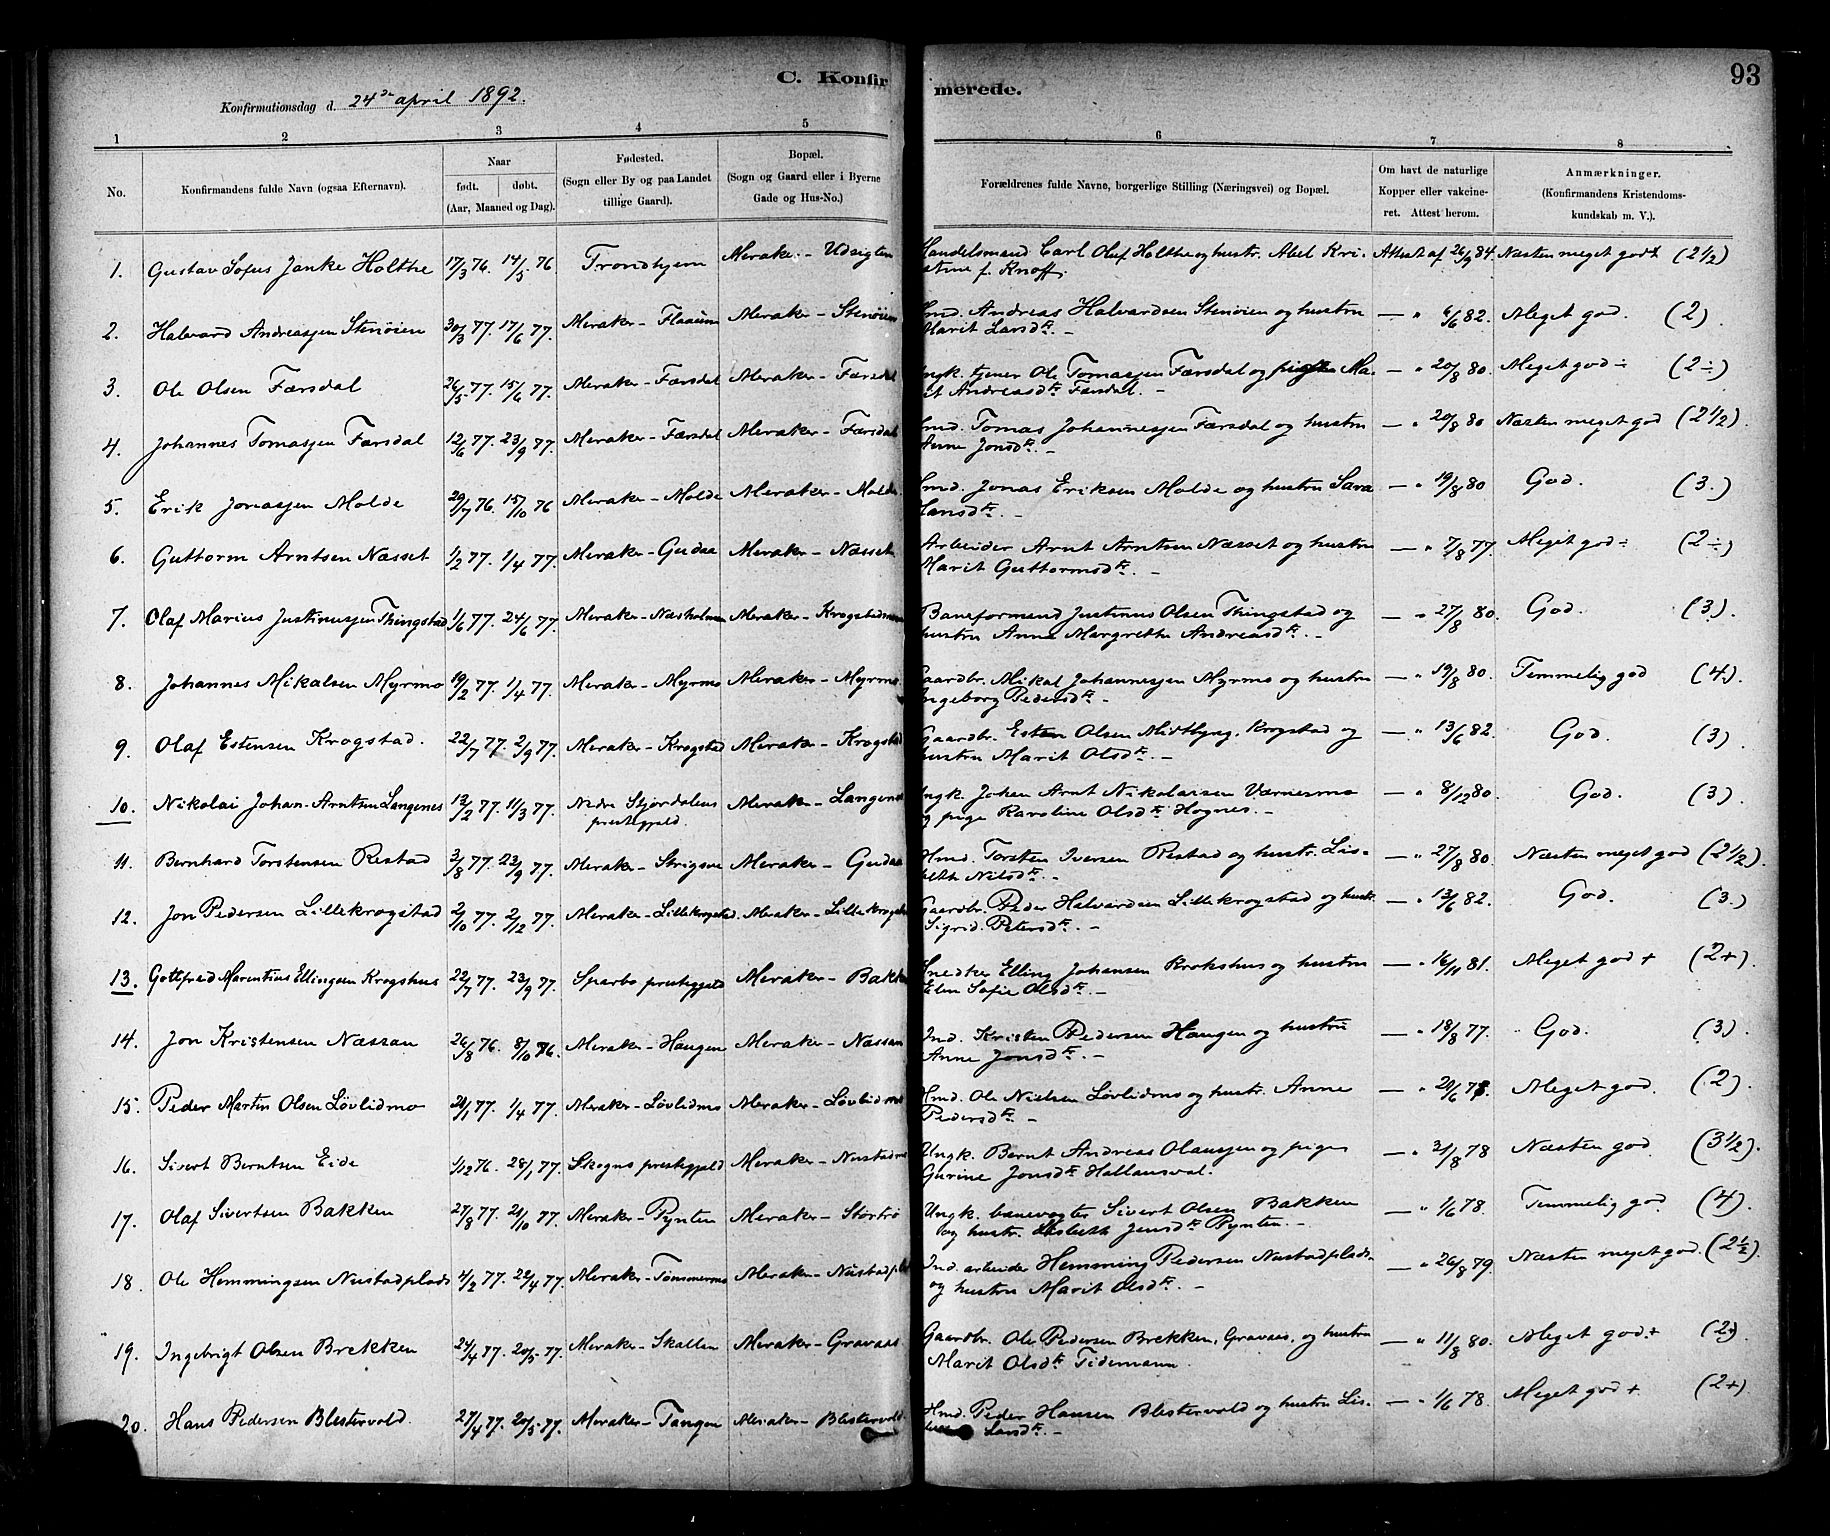 C. Konfirmerede.
93
Konfirmationsdag d. 24de april 1892.
1 2 3 4 5 6 7 8
No. Konfirmandens fulde Navn (ogsaa Efternavn). Naar født. døbt. (Aar, Maaned og Dag). Fødested. (Sogn eller By og paa Landet tillige Gaard). Bopæl. (Sogn og Gaard eller i Byerne Gade og Hus-No.) Forældrenes fulde Navne, borgerlige Stilling (Næringsvei) og Bopæl. Om havt de naturlige Kopper eller vakcineret. Attest herom. Anmærkninger. (Konfirmandens Kristendomskundskab m. V.).
1. Gustav Sofus Janke Holthe 17/3 76. 14/5 76 Trondhjem Meraker - Udsigten Handelsmand Carl Oluf Holthe og hustr. Abel Kristine f. Knoff. Attest af 26/9 84. Næsten meget godt (2 1/2)
2. Halvard Andreassen Stenøien 30/3 77. 17/6 77. Meraker - Flaaum Meraker - Stenøien Hmd. Andreas Halvardsen Stenøien og hustru Marit Larsdtr. - — " 6/6 82. Meget god. (2).
3. Ole Olsen Færsdal 26/5 77. 15/6 77. Meraker - Færsdal Meraker - Færsdal Ungk. tjener Ole Tomassen Færsdal og pige Marit Andreasdtr. Færsdal. - — " 20/8 80. Meget god ÷ (2÷)
4. Johannes Tomassen Færsdal 12/6 77. 23/9 77. Meraker - Færsdal Meraker - Færsdal Hmd. Tomas Johannessen Færsdal og hustru Anne Jonsdtr. - — " 20/8 80 Næsten meget god (2 1/2).
5. Erik Jonassen Molde 29/7 76. 15/10 76 Meraker - Molde Meraker - Molde. Hmd. Jonas Eriksen Molde og hustru Sara Hansdtr. - — " 19/8 80 God. (3.)
6. Guttorm Arntsen Næsset 1/2 77. 1/4 77. Meraker - Gudaa Meraker - Næsset Arbeider Arnt Arntsen Næsset og hustru Marit Guttormsdtr. - — " 7/8 77. Meget god ÷ (2÷)
7. Olaf Marius Justinussen Thingstad 1/6 77. 24/6 77. Meraker - Næsholmen Meraker - Krogstadmoen Baneformand Justinus Olsen Thingstad og hustru Anne Margrethe Andreasdtr. - — " 27/8 80. God. (3).
8. Johannes Mikalsen Myrmo 19/2 77. 1/4 77. Meraker - Myrmo Meraker - Myrmo Gaardbr. Mikal Johannessen Myrmo og hustru Ingeborg Pedersdtr. - — " 19/8 80. Temmelig god (4)
9. Olaf Estensen Krogstad. 22/7 77. 2/9 77. Meraker - Krogstad Meraker - Krogstad Gaardbr. Esten Olsen Midtbyg. Krogstad og hustru Marit Olsdtr. - — " 13/6 82. God. (3)
10. Nikolai Johan Arntsen Langenes 12/2 77. 11/3 77. Nedre Stjørdalens prestegjeld. Meraker - Langenes Ungk. Johan Arnt Nikolaisen Værnesmo og pige Karoline Olsdtr. Hognes. - — " 8/12 80. God. (3).
11. Bernhard Torstensen Restad 3/8 77. 23/9 77. Meraker - Meraker - Gudaa Hmd. Torsten Iversen Restad og hustr. Lisbeth Nilsdtr. - — " 27/8 80. Næsten meget god (2 1/2).
12. Jon Pedersen Lillekrogstad 2/10 77. 2/12 77. Meraker - Lillekrogstad. Meraker - Lillekrogstad Gaardbr. Peder Halvardsen Lillekrogstad og hustr. Sigrid Petersdtr. - — " 13/6 82. God. (3.)
13. Gottfred Marentius Ellingsen Krogshus 22/7 77. 23/9 77. Sparbo prestegjeld Meraker - Bakken Snedker Elling Johansen Krokshus og hustru Elen Sofie Olsdtr. - — " 16/11 81. Meget god + (2+).
14. Jon Kristensen Næssan 26/8 76. 8/10 76. Meraker - Haugen Meraker - Næssan Ind. Kristen Pedersen Haugen og hustru Anne Jonsdtr. - — " 18/8 77. God. (3).
15. Peder Martin Olsen Løvlidmo 21/1 77. 1/4 77. Meraker - Løvlidmo Meraker - Løvlidmo Hmd. Ole Nielsen Løvlidmo og hustr. Anne Pedersdtr. - Meget god. (2).
16. Sivert Berntsen Eide 1/12 76. 28/1 77. Skogns prestegjeld Meraker - Nustadmo Ungk. Bernt Andreas Olaussen og pige Gurine Jonsdtr. Hallansval. — " 31/8 78 Næsten god. (3 1/2).
17. Olaf Sivertsen Bakken 27/8 77. 21/10 77. Meraker - Pynten Meraker - Stortrø Ungk. banevogter Sivert Olsen Bakken og hustr. Jensdtr. Pynten. - — " 1/6 78. Temmelig god. (4).
18. Ole Hemmingsen Nustadplads 4/2 77. 22/4 77. Meraker - Tømmermo Meraker - Nustadplads Ind. arbeider Hemming Pedersen Nustadplads og hustru Marit Olsdtr. - — " 26/8 79. Næsten meget god. (2 1/2).
19. Ingebrigt Olsen Brekken 24/4 77. 20/5 77. Meraker - Skallen Meraker - Gravaas Gaardbr. Ole Pedersen Brekken, Gravaas, og hustru Marit Olsdtr. Tidemann. — " 11/8 80. Meget god + (2+)
20. Hans Pedersen Blestervold. 27/4 77. 20/5 77. Meraker - Tangen Meraker - Blestervold Hmd. Peder Hansen Blestervold og hustru Larsdtr. - — " 1/6 78. Meget god + (2+)